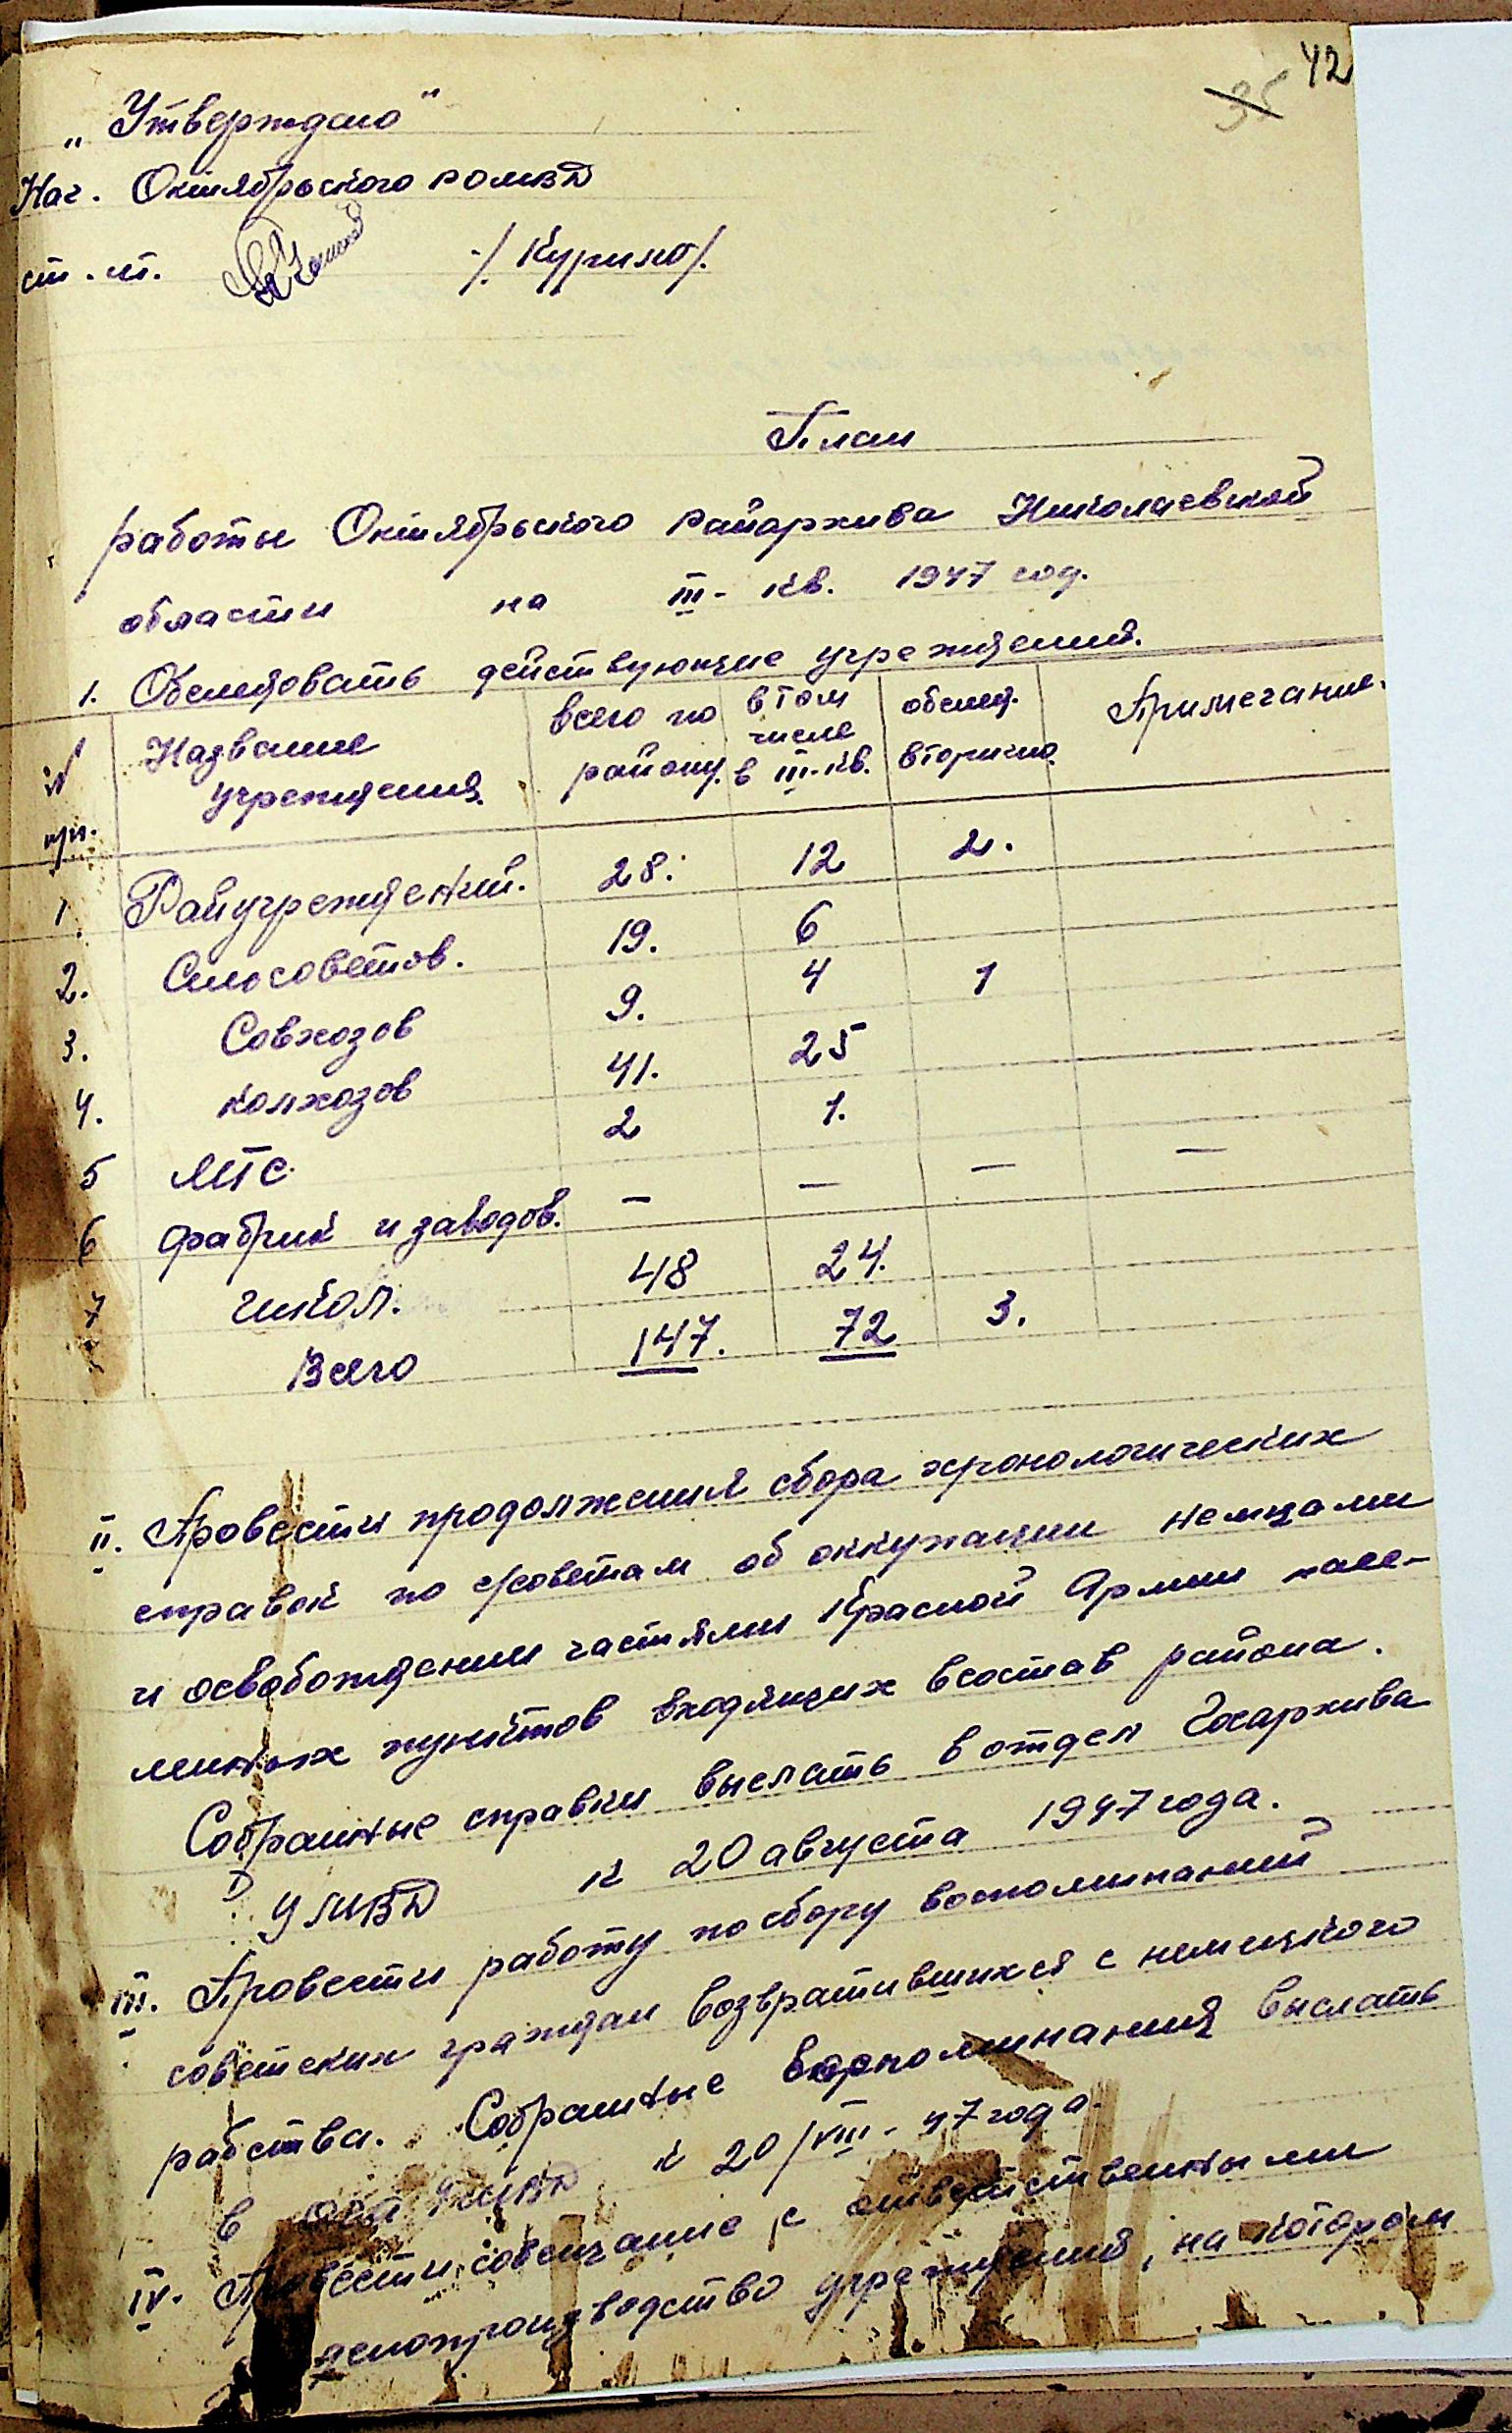 42
35
„Утверждаю“
Нач. Октябрьского РОМВД
ст. лт. /Курило/.
План
работы Октябрьского райархива Николаевской
области на III- кв. 1947 год.
1. Обследовать действующие учреждений.
№ пп. Название учреждения. всего по району. в том числе в III-кв. обслед. вторично. Примечание.
1. Райучреждений. 28. 12 2.
2. Сельсоветов. 19. 6
3. Совхозов 9. 4 1
4. Колхозов 41. 25
5 МТС. 2 1.
6 Фабрик и заводов. — — — —
7 Школ. 48 24.
Всего 147. 72 3.
II. Провести продолжения сбора хронологических
справок по с/советам об оккупации немцами
и освобождении частями Красной Армии насе-
ленных пунктов входящих в состав района.
Собранные справки выслать в отдел Госархива
УМВД к 20 августа 1947 года.
III. Провести работу по сбору воспоминаний
советских граждан возвратившихся с немецкого
рабства. Собранные воспоминания выслать
в к 20/VIII- 47 года.
IV. Провести совещание с ответственными
делопроизводство учреждений, на котором